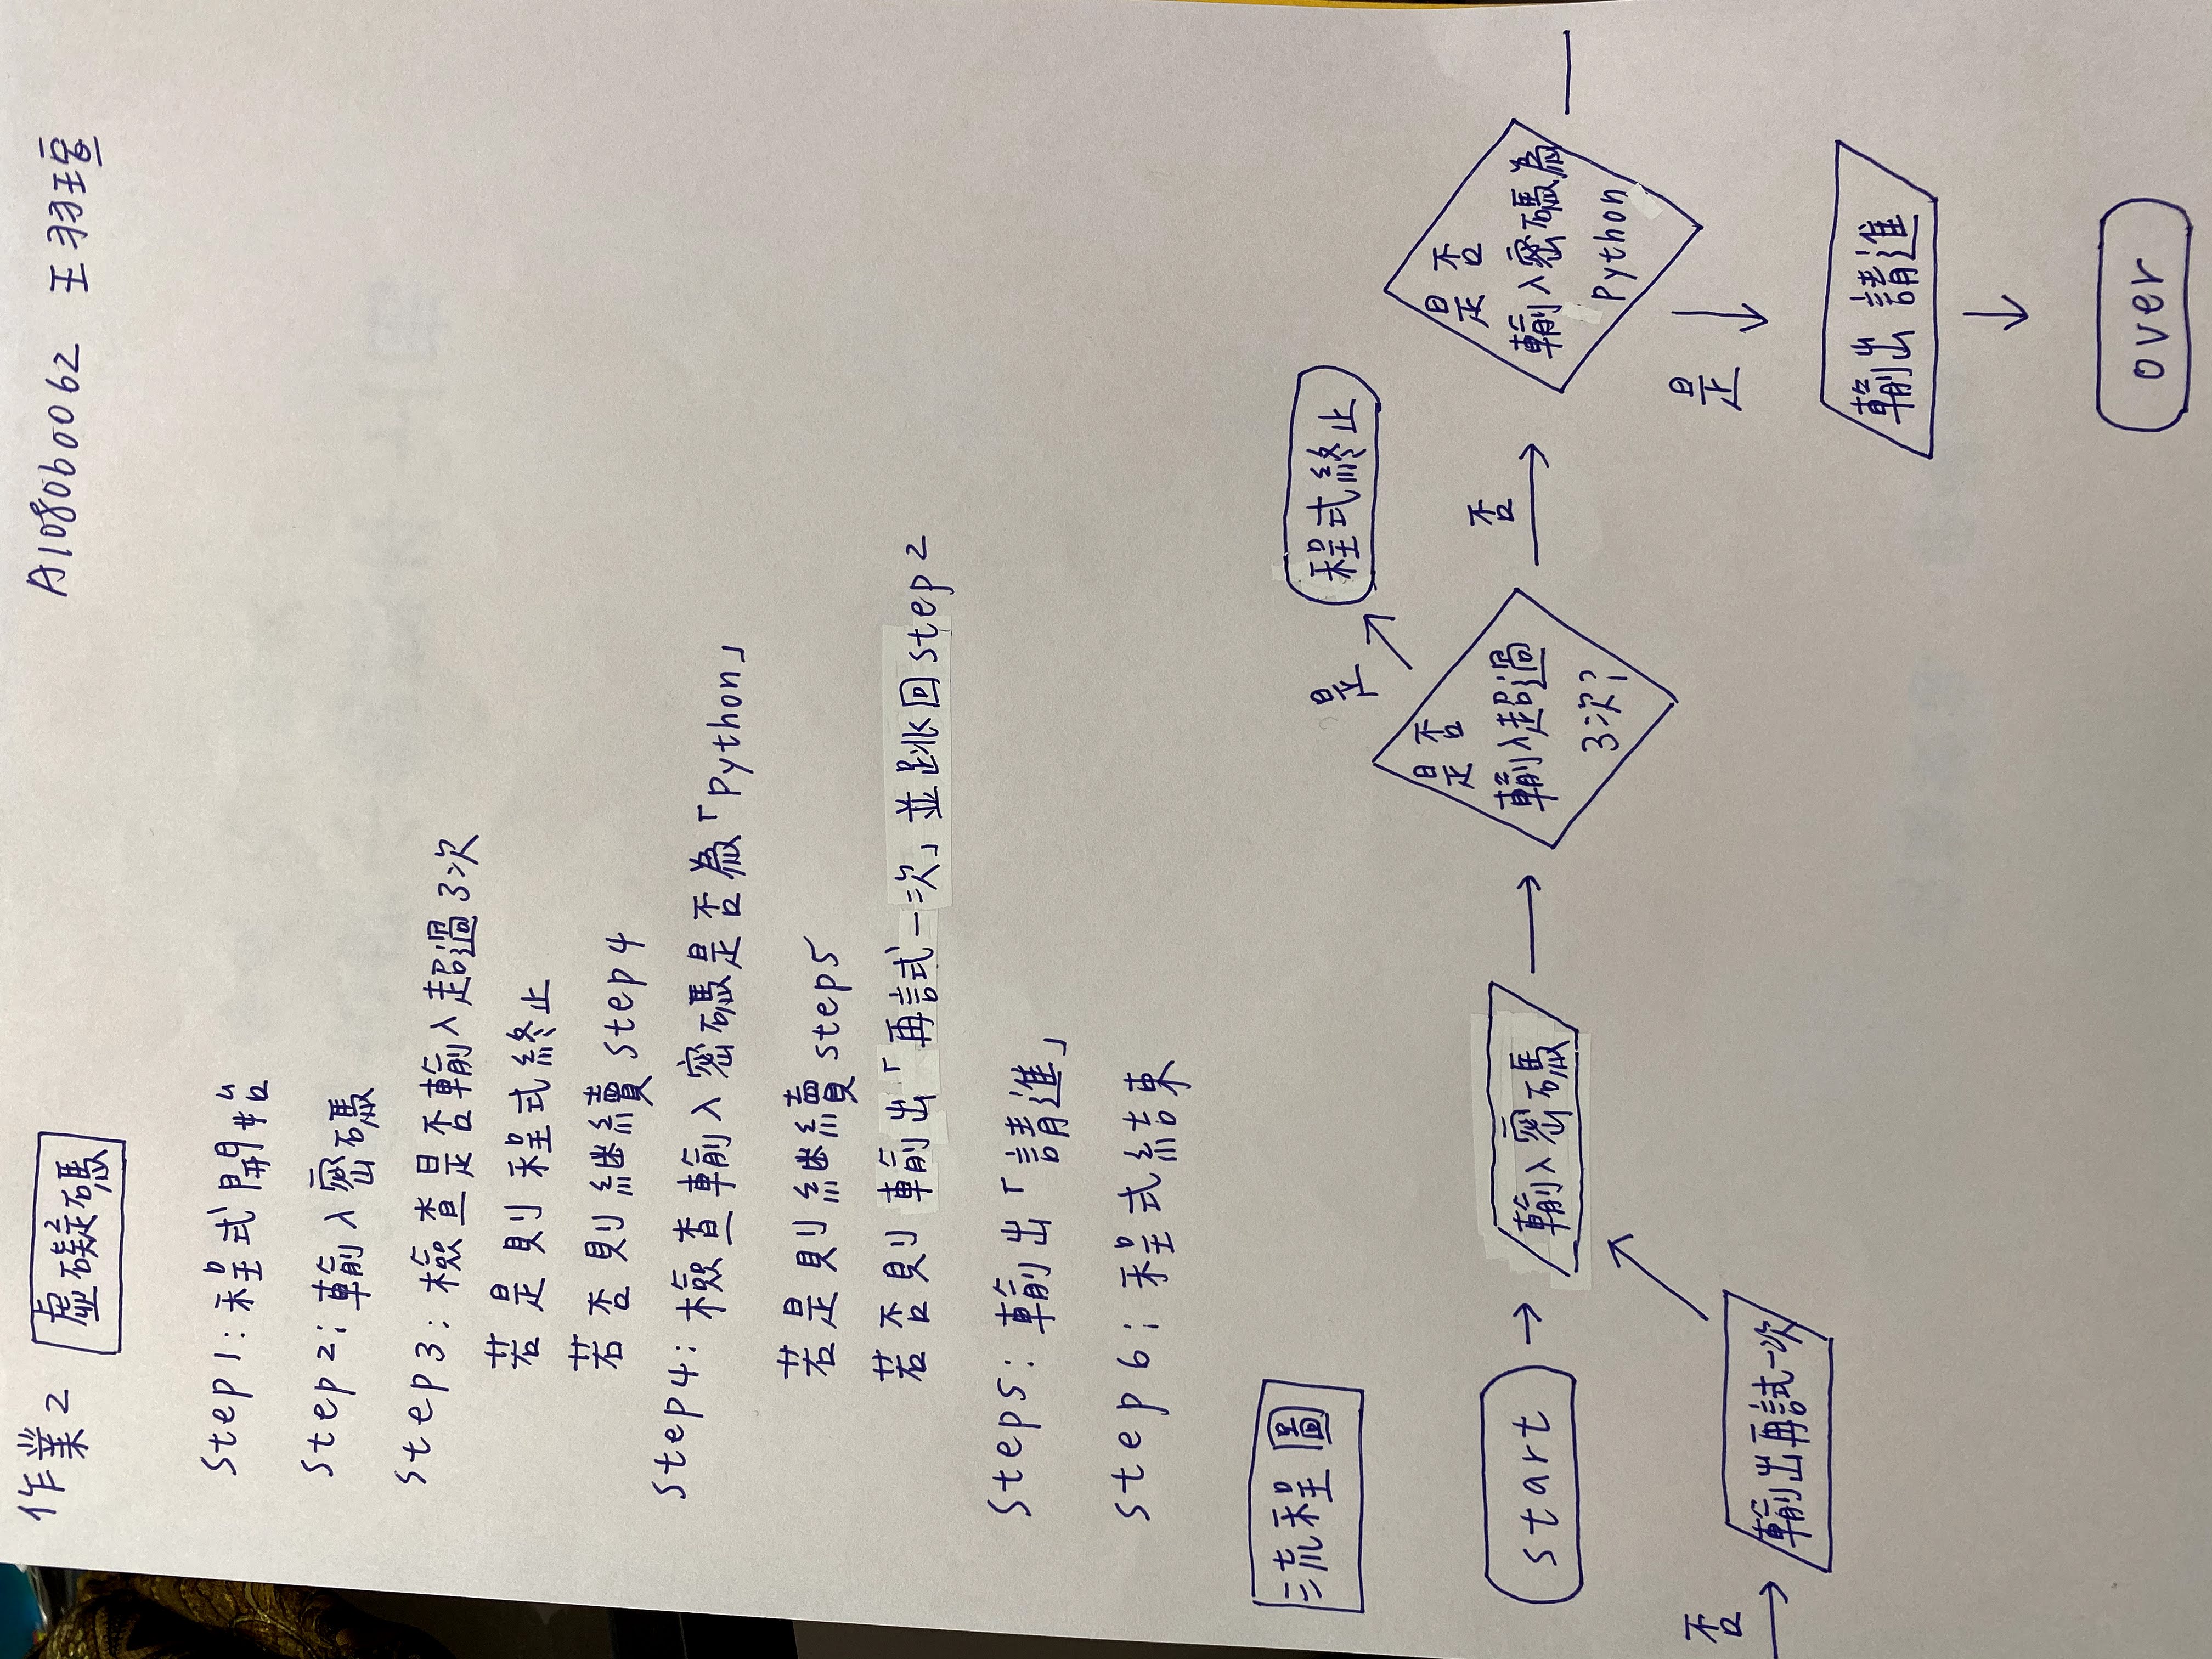 作業2 虛礙碼
A108060062 王羽瑄
step1:程式開始
step2:輸入密碼
step3:檢查是否輸入超過3次
若是則程式終止
若否則繼續step4
step4:檢查輸入密碼是否為「Python」
若是則繼續step5
若否則輸出「再試一次」並跳回step2
step5:輸出「請進」
step6:程式結束
流程圖
start
輸入密碼
是否
輸入超過
3次?
是
程式終止
否
是否
輸入密碼為
Python
否
輸出再試一次
是
輸出 請進
over